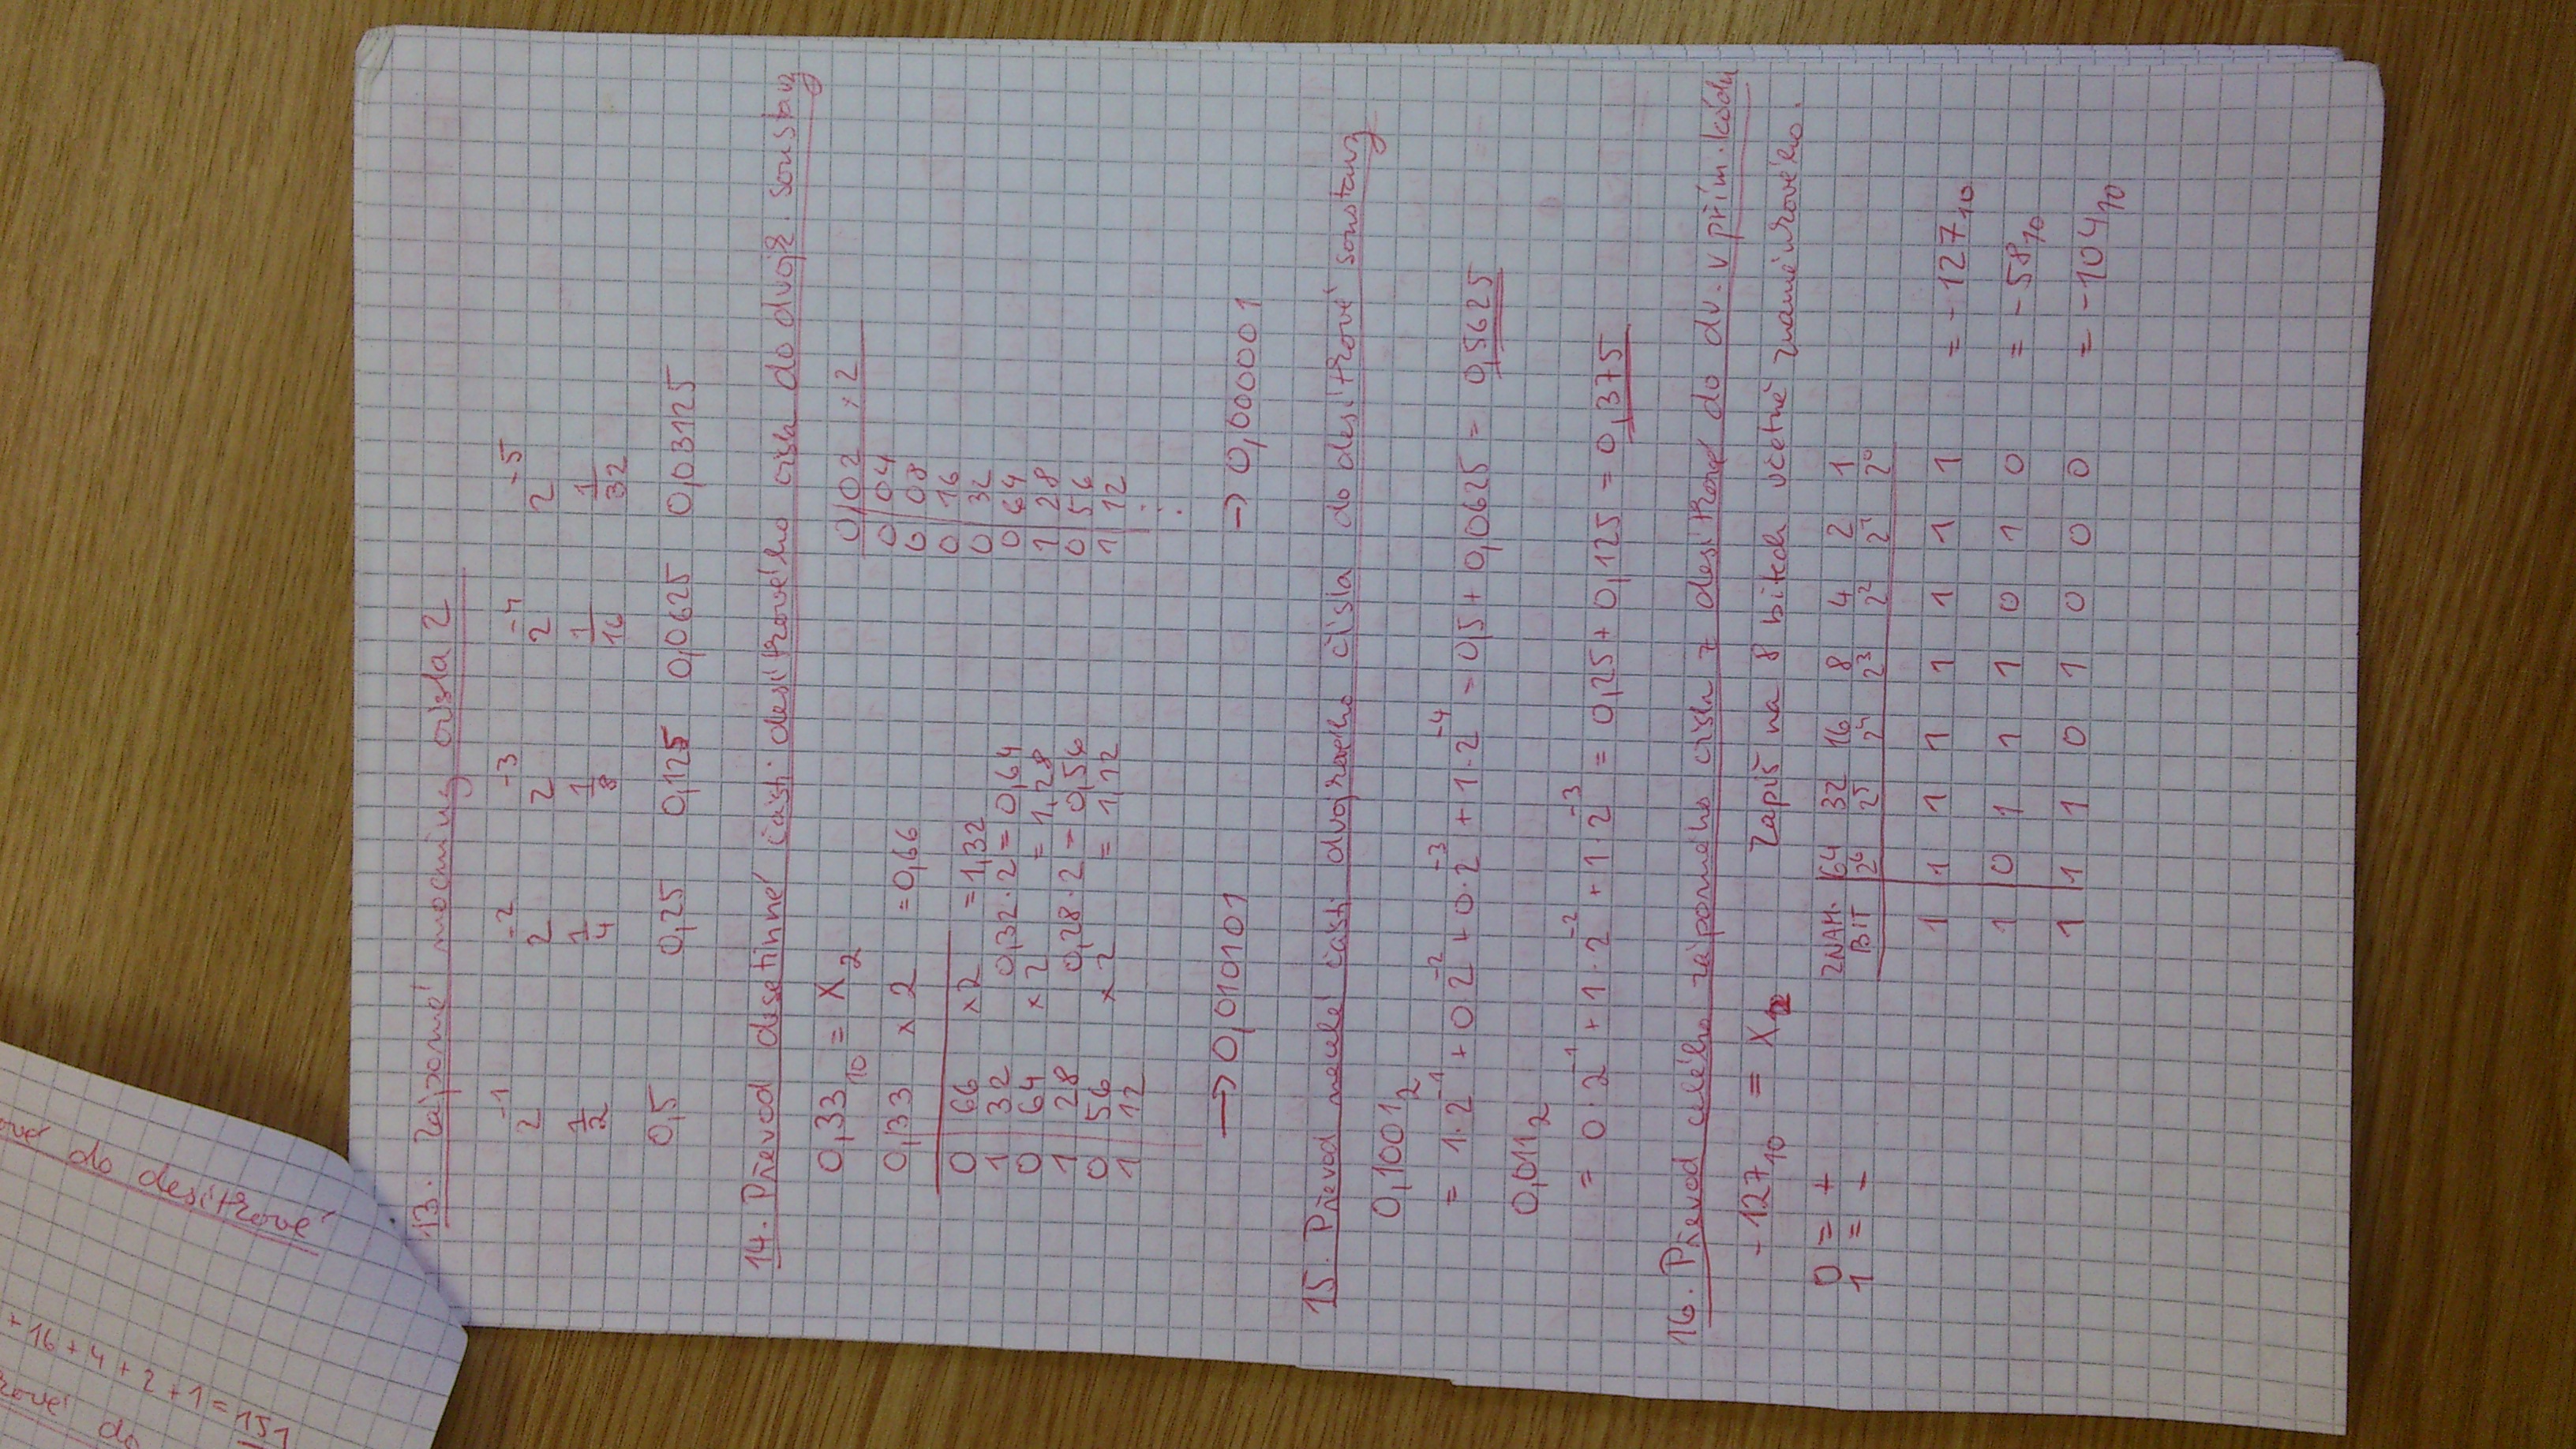 13. Záporné mocniny čísla 2
2⁻¹ 2⁻² 2⁻³ 2⁻⁴ 2⁻⁵
1/2 1/4 1/8 1/16 1/32
0,5 0,25 0,125 0,0625 0,03125
14. Převod desetinné části desítkového čísla do dvojk. soustavy
0,33₁₀ = X₂ 0,02 ×2
0,33 ×2 = 0,66 0 04
0 66 ×2 = 1,32 0 08
1 32 0,32·2 = 0,64 0 16
0 64 ×2 = 1,28 0 32
1 28 0,28·2 = 0,56 0 64
0 56 ×2 = 1,12 1 28
1 12 0 56
1 12
⋮
→ 0,010101 → 0,000001
15. Převod necelé části dvojkového čísla do desítkové soustavy
0,1001₂
= 1·2⁻¹ + 0·2⁻² + 0·2⁻³ + 1·2⁻⁴ = 0,5 + 0,0625 = 0,5625
0,011₂
= 0·2⁻¹ + 1·2⁻² + 1·2⁻³ = 0,25 + 0,125 = 0,375
16. Převod celého záporného čísla z desítkové do dv. v přím. kódu
-127₁₀ = X₂ Zapiš na 8 bitech včetně znaménkového.
0 = + ZNAM. 64 32 16 8 4 2 1
1 = - BIT 2⁶ 2⁵ 2⁴ 2³ 2² 2¹ 2⁰
1 1 1 1 1 1 1 1 = -127₁₀
1 0 1 1 1 0 1 0 = -58₁₀
1 1 1 0 1 0 0 0 = -104₁₀
do desítkové
+ 16 + 4 + 2 + 1 = 151
do